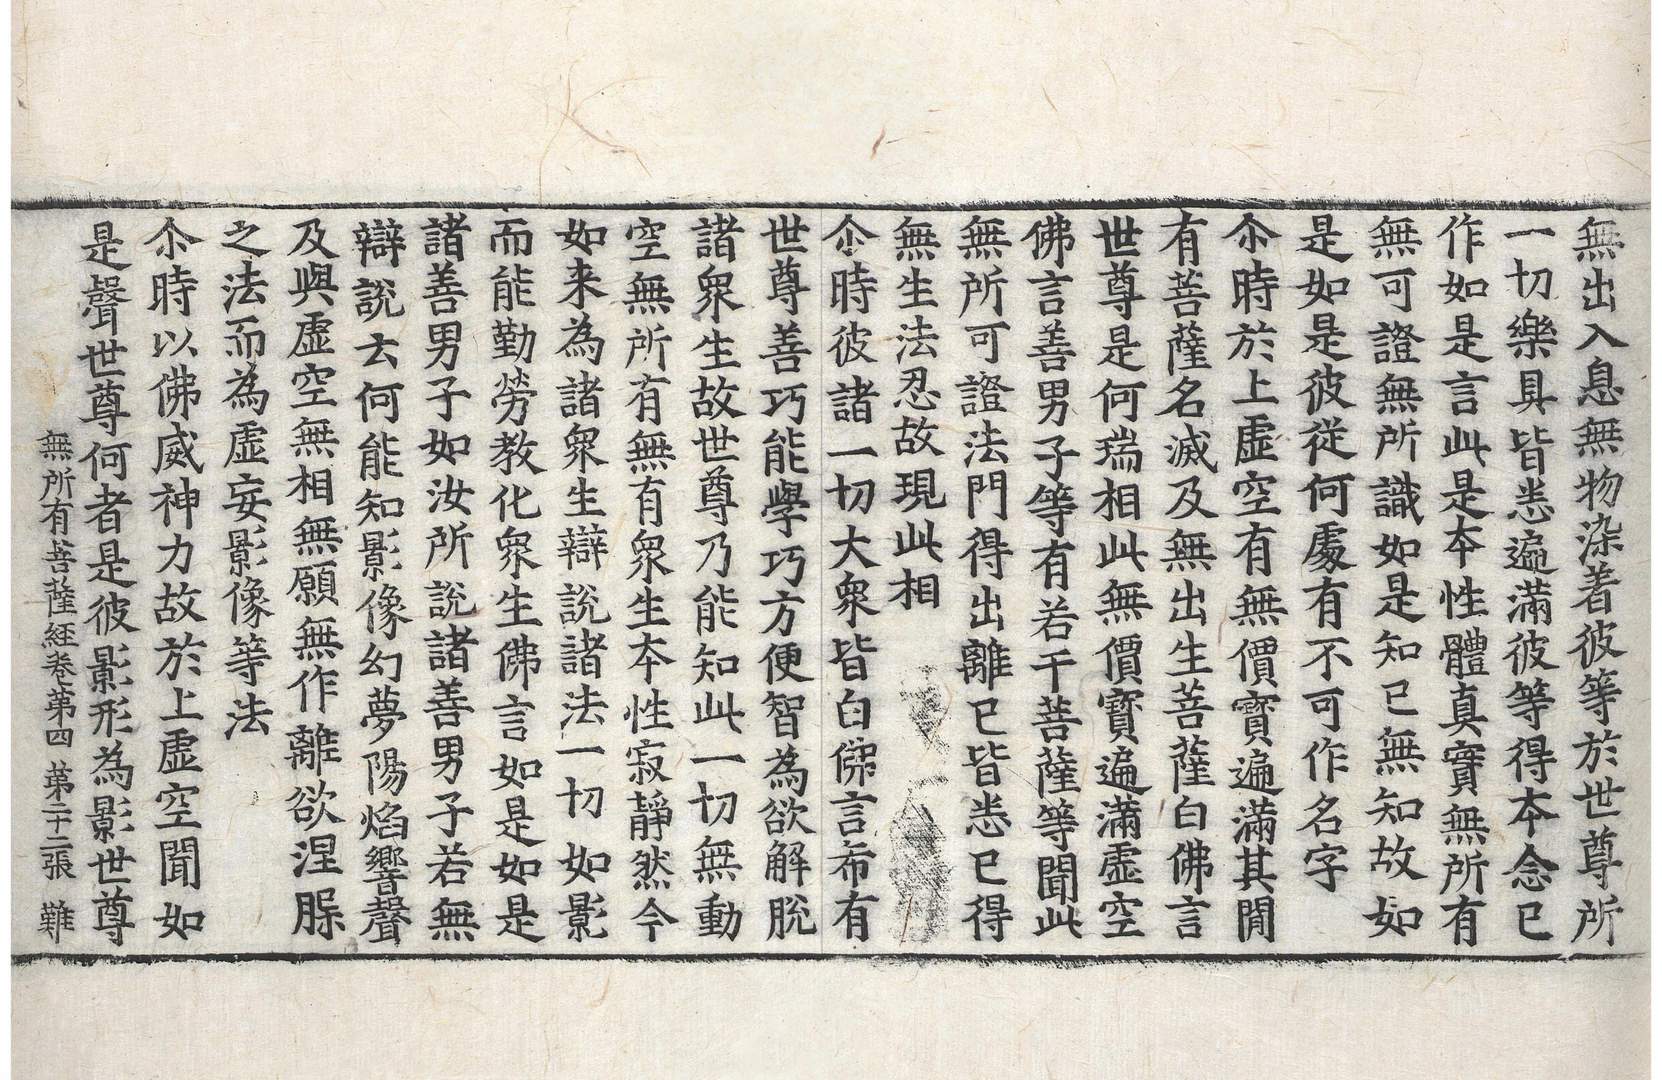 無出入息無物染著彼等於世尊所
一切樂具皆悉遍滿彼等得本念已
作如是言此是夲性體真實無所有
無可證無所識如是知已無知故如
是如是彼從何處有不可作名字
尒時於上虛空有無價寶遍滿其閒
有菩薩名滅及無出生菩薩白佛言
世尊是何瑞相此無價寶遍滿虛空
佛言善男子等有若干菩薩等聞此
無所可證法門得出離已皆悉已得
無生法忍故現此相
尒時彼諸一切大衆皆白佛言希有
世尊善巧能學巧方便智為欲解脫
諸衆生故世尊乃能知此一切無動
空無所有無有衆生夲性寂靜然今
如来為諸衆生辯說諸法一切如影
而能勤勞教化衆生佛言如是如是
諸善男子如汝所說諸善男子若無
辯說云何能知影像幻夢陽焰響聲
及與虛空無相無願無作離欲涅槃
之法而為虛妄影像等法
尒時以佛威神力故於上虛空聞如
是聲世尊何者是彼影形為影世尊
無所有菩薩経卷第四 第二十二張 難